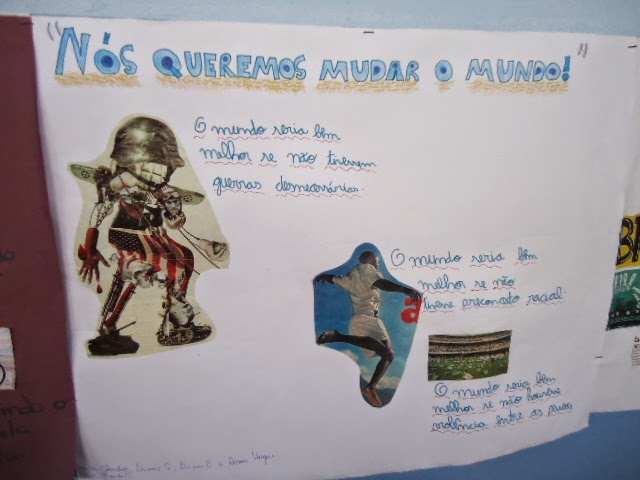 "Nós QUEREMOS MUDAR O MUNDO!"
O mundo seria bem
melhor se não tivessem
guerras desnecessárias.
O mundo seria bem
melhor se não
tivesse preconceito racial.
a
O mundo seria bem
melhor se não houvesse
violência entre as